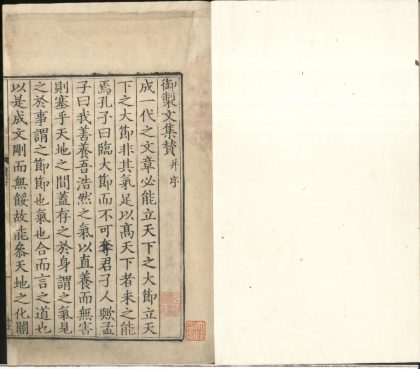 御製文集贊并序
成一代之文章必能立天下之大節立天
下之大節非其氣足以高天下者未之能
焉孔子曰臨大節而不可奪君子人歟孟
子曰我善養吾浩然之氣以直養而無害
則塞乎天地之間蓋存之於身謂之氣見
之於事謂之節節也氣也合而言之道也
以是成文剛而無餒故能參天地之化關